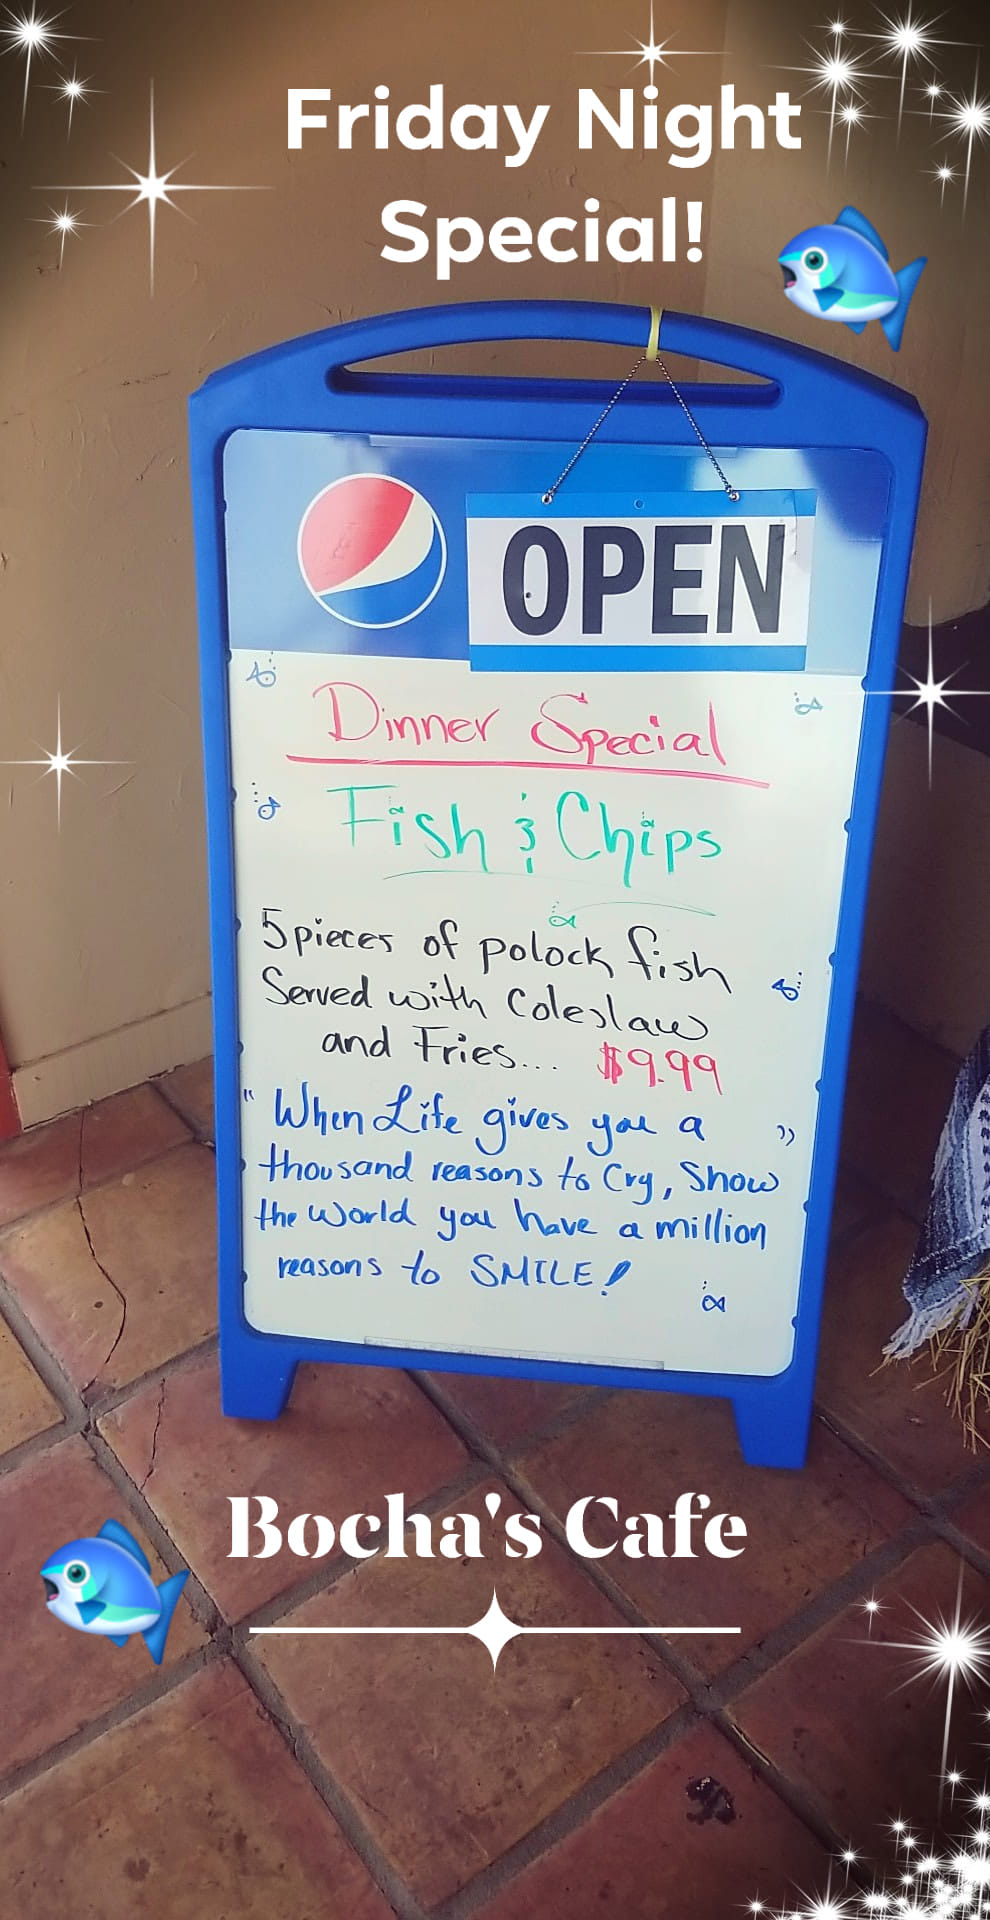 Friday Night
Special!
OPEN
Dinner Special
Fish & Chips
5 pieces of polock fish
Served with Coleslaw
and Fries... $9.99
"When Life gives you a
thousand reasons to Cry, Show
the World you have a million
reasons to SMILE!"
Bocha's Cafe